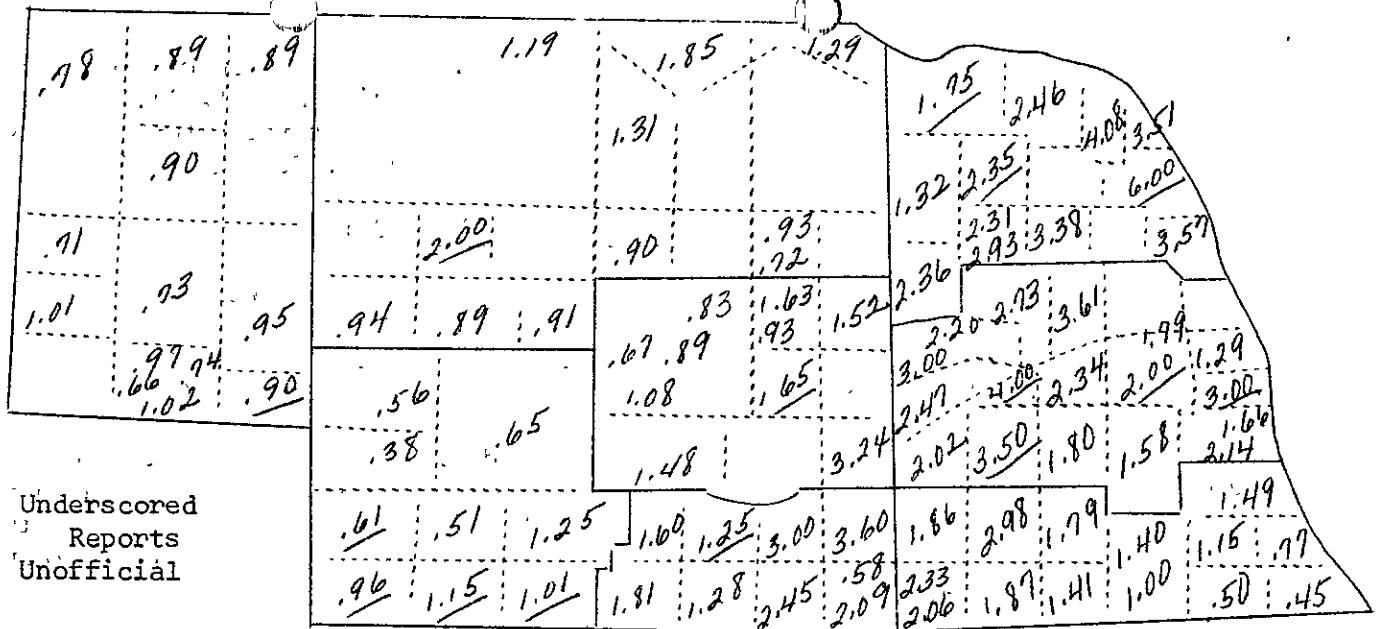 .78 .89 .89 1.19 1.85 1.29
1.75 2.46 4.08 3.51
.90 1.31 1.32 2.35 6.00
.71 2.00 .90 .93 2.31 3.38 3.57
.72 2.93
1.01 .73 .95 .94 .89 .91 .83 1.63 1.52 2.36 2.20 2.73 3.61 1.99
.67 .89 .93 3.00 1.29
.97 .74
.66 1.02 .90 .56 1.08 1.65 2.47 4.00 2.34 2.00 3.00
.38 .65 1.48 3.24 2.02 3.50 1.80 1.58 1.66
2.14
Underscored
Reports
Unofficial
.61 .51 1.25 1.60 1.25 3.00 3.60 1.86 2.98 1.79 1.40 1.15 1.49 .77
.96 1.15 1.01 1.81 1.28 2.45 .58 2.33 1.87 1.41 1.00 .50 .45
2.09 2.06